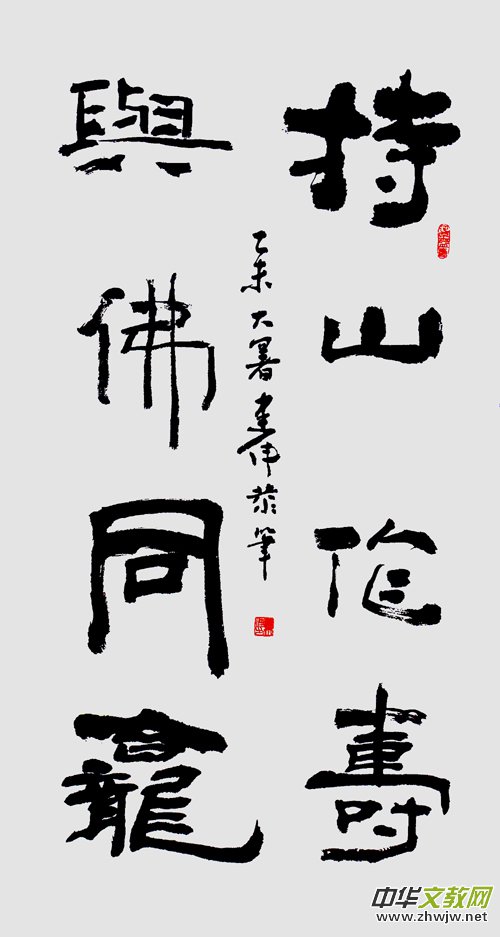 持山作壽
與佛同龕
乙未大暑建伟恭筆
中华文教网
www.zhwjw.net